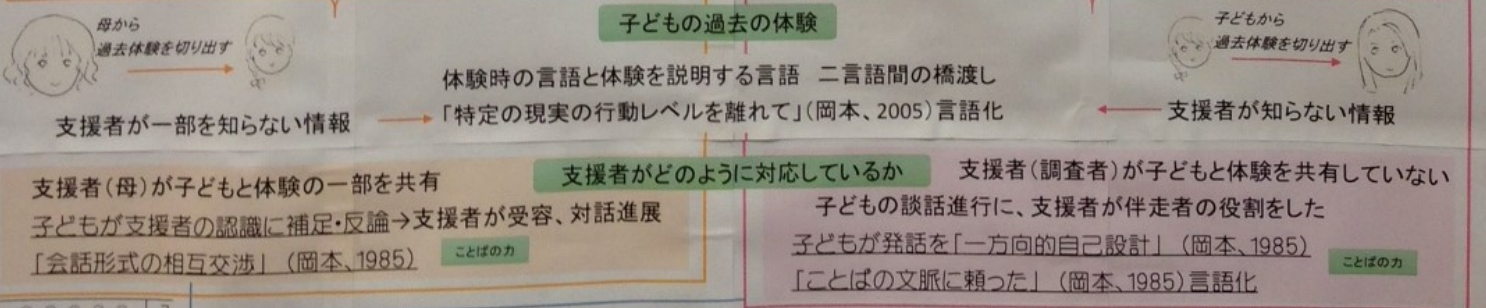 子どもの過去の体験
母から
過去体験を切り出す
子どもから
過去体験を切り出す
体験時の言語と体験を説明する言語　二言語間の橋渡し
支援者が一部を知らない情報
「特定の現実の行動レベルを離れて」(岡本、2005)言語化
支援者が知らない情報
支援者がどのように対応しているか
支援者(母)が子どもと体験の一部を共有
子どもが支援者の認識に補足・反論→支援者が受容、対話進展
「会話形式の相互交渉」(岡本、1985)
ことばの力
支援者(調査者)が子どもと体験を共有していない
子どもの談話進行に、支援者が伴走者の役割をした
子どもが発話を「一方向的自己設計」(岡本、1985)
「ことばの文脈に頼った」(岡本、1985)言語化
ことばの力